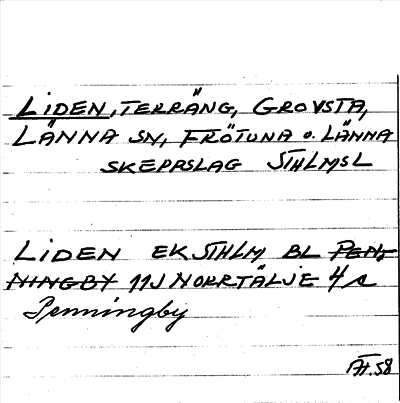 LIDEN, TERRÄNG, GROVSTA,
LÄNNA SN, FRÖTUNA o. LÄNNA
SKEPPSLAG STHLMSL
LIDEN EK STHLM BL PEN-
NINGBY 11J NORRTÄLJE 4 a
Penningby
58